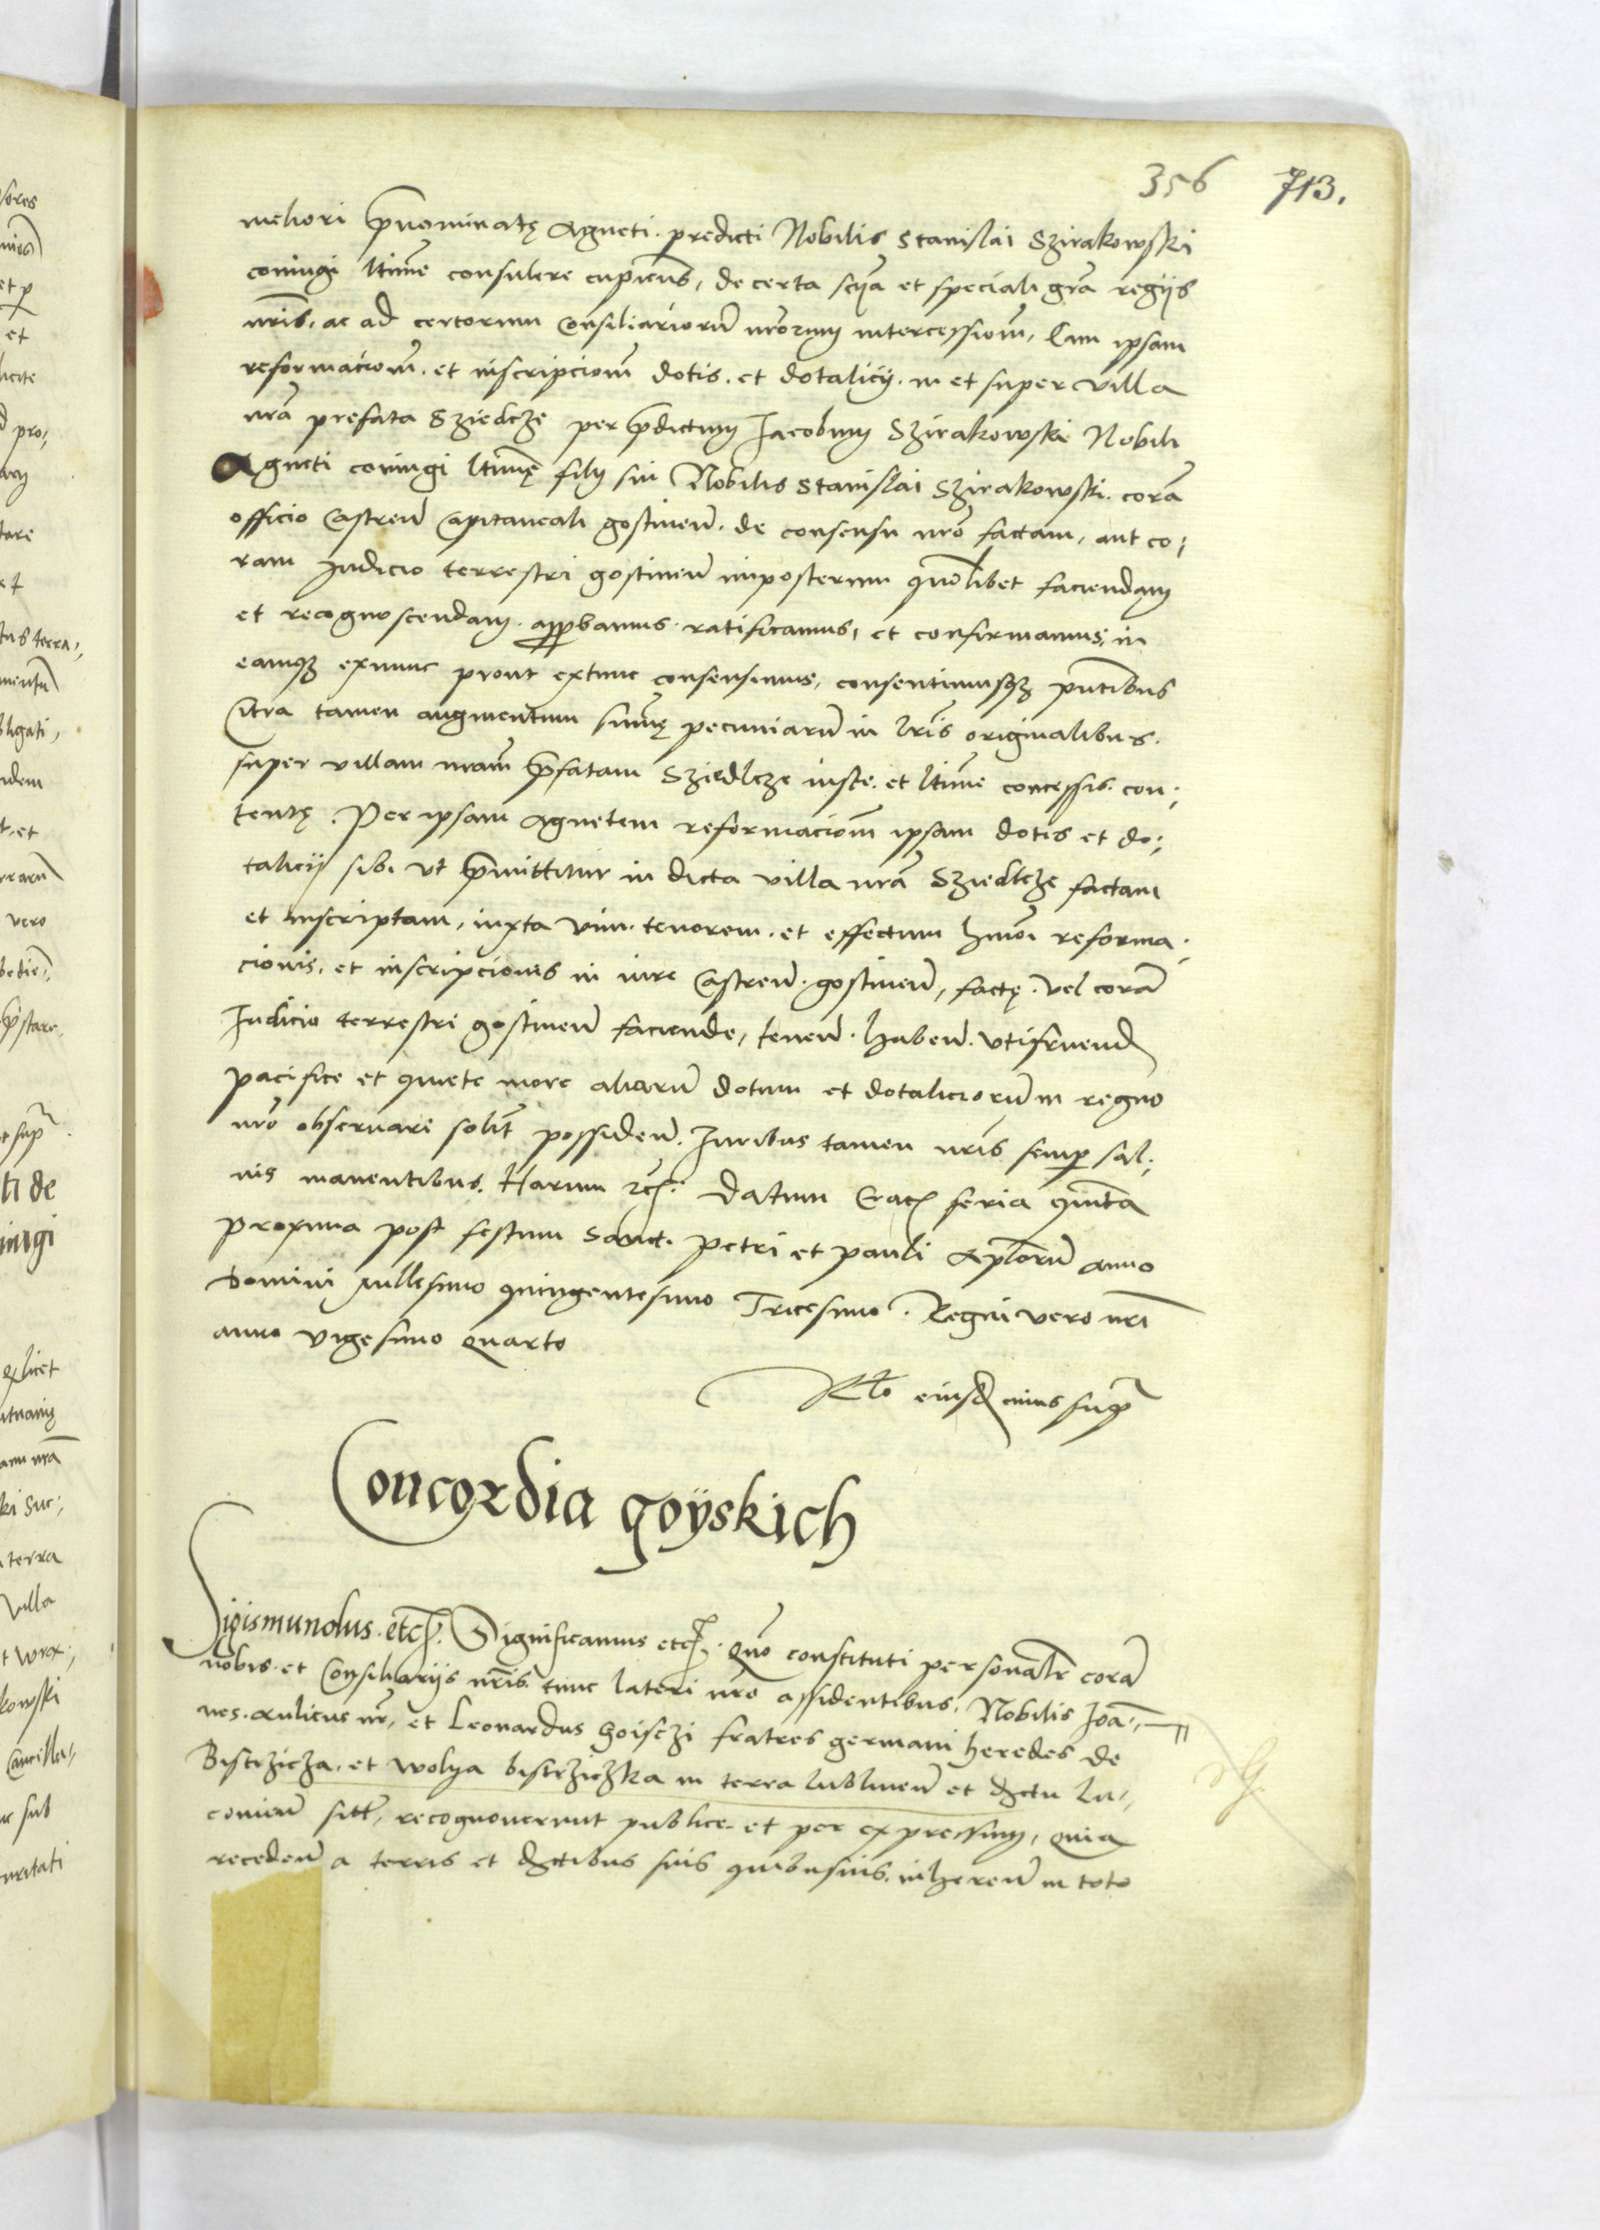 356 713.
meliori p̃nominatę Agneti. predicti Nobilis Stanislai Szirakowski
coniugi ltime consulere cupien̄s, de certa scïa et speciali gr̃a regijs
nr̃is, ac ad certorum Consiliariorũ nr̃orum intercessiom̃, Eam ipsam
reformaciom̃. et inscripciom̃ dotis. et dotalicij. in et super villa
nr̃a prefata Sziedcze per p̃dictum Jacobum Szirakowski Nobili
Agneti coniugi ltimę filij sui Nobilis Stanislai Szirakowski. corã
officio Castreñ Capitaneali gostineñ. de consensu nr̃o factam, aut co,
ram Judicio terrestri gostineñ imposterum quolibet faciendam
et recognoscendam. approbamus. ratificamus, et confirmamus, in
eamq3 exnunc prout extunc consensimus, consentimusq3 pñtibus
Citra tamen augmentum sum̃ę pecuniarũ in lr̃is originalibus.
super villam nram̃ p̃fatam Sziedlcze iuste. et ltime concessis. con,
tentę. Per ipsam Agnetem reformaciom̃ ipsam dotis et do,
talicij sibi ut p̃mittitur in dicta villa nr̃a Sziedlcze factam
et inscriptam, iuxta vim. tenorem. et effectum hm̃oi reforma,
cionis, et inscripcionis in iure Castreñ. gostineñ, factę. vel corã
Judicio terrestri gostineñ faciende, teneñ. habeñ. utifruend
pacifice et quiete more aliarũ dotum et dotaliciorũ in regno
nr̃o observari solit̃ possideñ. Juribus tamen nr̃is semp̃ sal,
vis manentibus. Harum etc. Datum Crac̃ feria quinta
proxima post festum Sanct. Petri et pauli Apl̃orũ anno
Domini Millesimo quingentesimo Tricesimo. Regni vero nr̃i
anno vigesimo quarto
Rl̃o eiusd cuius sup̃
Concordia goÿskich
Sigismundus. etc. Significamus etc. Quo constituti personalr̃ corã
nobis. et Consiliarijs nr̃is. tunc lateri nr̃o assidentibus, Nobilis Joã,
nes. Aulicus nr̃, et Leonardus Goiſczi fratres germani heredes de
Bistrzicza. et Wolya bistrziczka in terra lublineñ et dr̃ctu lu,
comieñ sitt̃, recognoverunt publice. et per expressum, quia
recedeñ a terris et dr̃ctibus suis quibusuis. inhereñ in toto